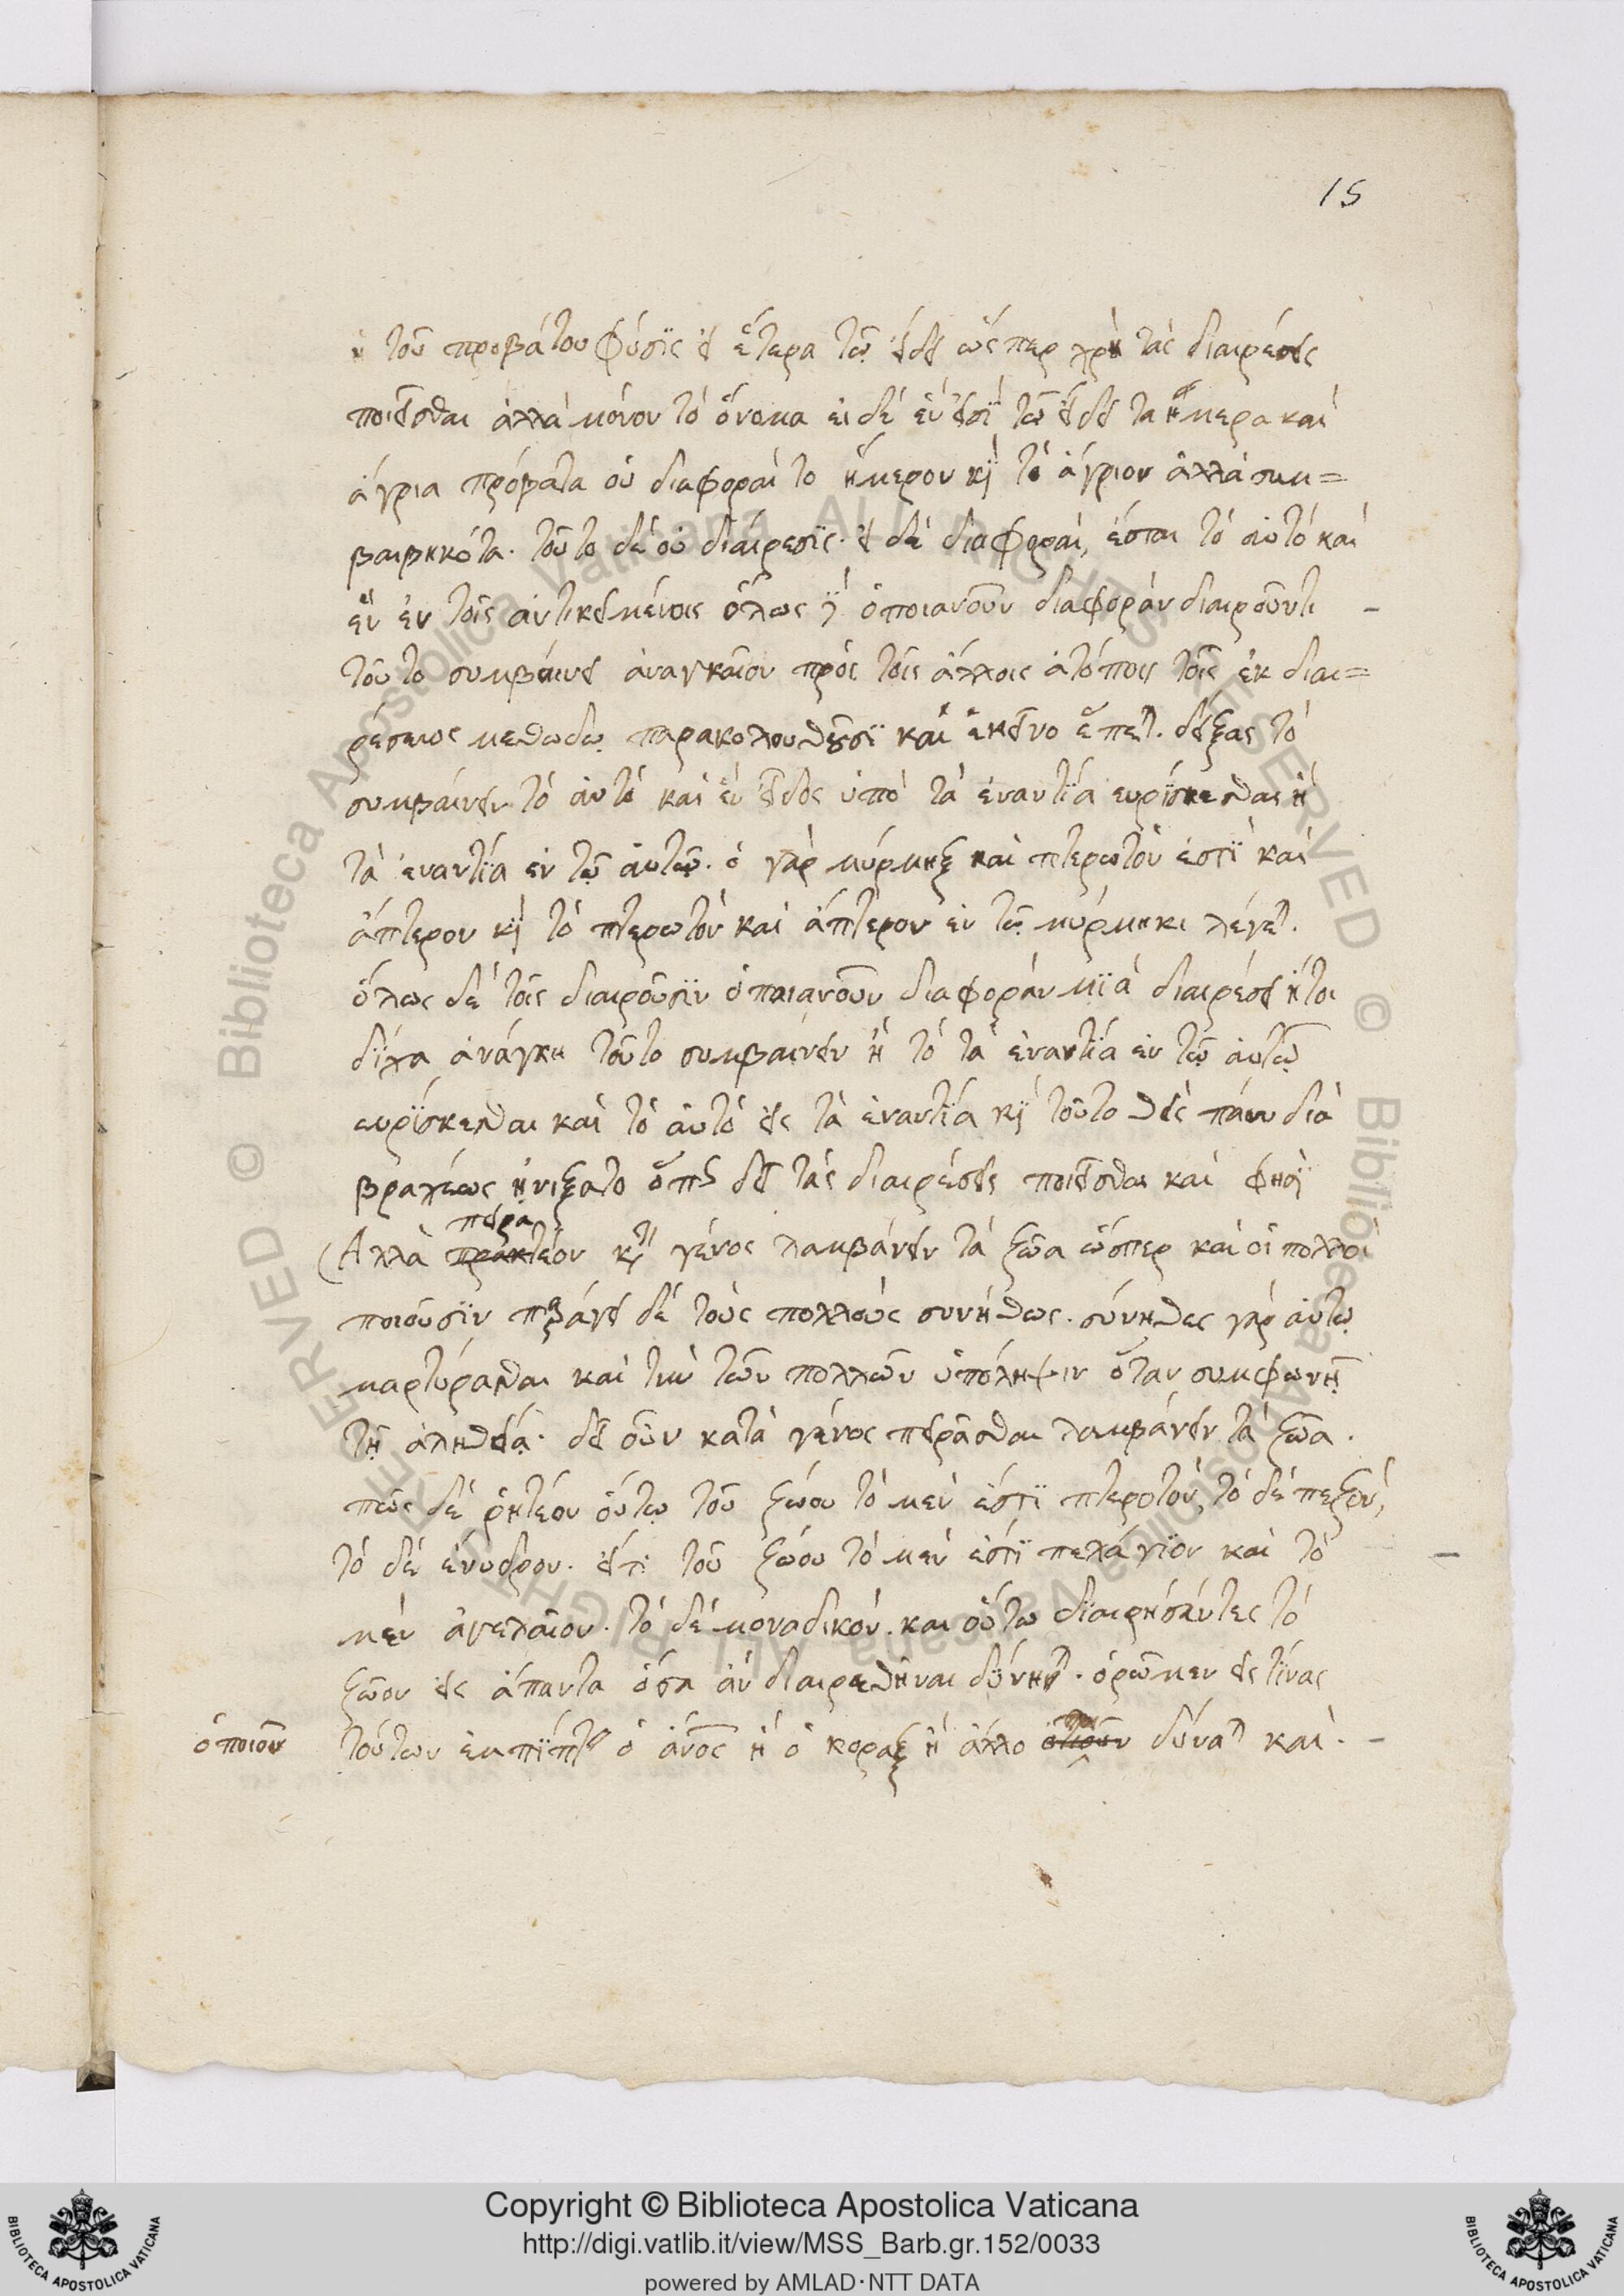 15
ἡ τοῦ προβάτου φύσϊς εἰ ἕτερα τῶ εἴδει ὥς περ χρὴ τὰς διαιρέσεις
ποιεῖσθαι ἀλλὰ μόνον τὸ ὄνομα εἰ δέ ἕν εἰσϊ τῶ εἴδει τα ἥμερα και
άγρια πρόβατα οὐ διαφοραὶ το ἥμερον κὶ τὸ ἄγριον ἀλλά συμ=
βαιβηκότα. τοῦτο δὲ οὐ διαίρεσϊς. εἰ δὲ διαφοραὶ, ἔσται τὸ αὐτὸ καὶ
ἓν ἐν τοῖς ἀντικειμένοις ὅλως ὁποιανοῦν διαφορὰν διαιροῦντι -
τοῦτο συμβαίνει ἀναγκαῖον πρὸς τοῖς ἄλλοις ἀτόποις τοῖς ἐκ διαι=
ρέσεως μεθώδω παρακολουθοῦσϊ καὶ ἐκεῖνο ἕπεται. δείξας τὸ
συμβαίνειν τὸ αὐτὸ καὶ ἓν εἶδος ὑπὸ τὰ ἐναντϊα ευρϊσκεσθαι ἢ
τὰ ἐναντϊα ἐν τῶ αὐτῶ. ὁ γὰρ μύρμηξ καὶ πτερωτὸν ἐστϊ καὶ
ἄπτερον κὶ τὸ πτερωτὸν καὶ ἄπτερον ἐν τῶ μύρμηκι λέγεται.
ὅλως δὲ τοῖς διαιροῦσϊν ὁποιανοῦν διαφορὰν μϊᾶ διαιρέσει ἤτοι
δϊχα ἀνάγκη τοῦτο συμβαίνειν ἢ τὸ τὰ ἐναντϊα ἐν τῶ αὐτῶ
ευρϊσκεσθαι καὶ τὸ αὐτὸ εἰς τὰ ἐναντϊα κὶ τοῦτο θεὶς πάνυ διὰ
βραχέως ἠνιξατο ὅπως δεῖ τὰς διαιρέσεις ποιεῖσθαι καὶ φησϊ
πειρα
(Αλλὰ πρακτέον κατὰ γένος λαμβάνειν τὰ ζῶα ὥσπερ καὶ οἱ πολλοὶ
ποιοῦσϊν παράγει δὲ τοὺς πολλοὺς συνήθως. σύνηθες γὰρ αὐτῶ
μαρτύρασθαι καὶ τὴν τῶν πολλῶν ὑπόληψιν ὅταν συμφωνῆ
τῆ ἀληθεία. δεῖ οὖν κατὰ γένος πειρᾶσθαι λαμβάνειν τὰ ζῶα.
πῶς δὲ ῥητέον οὕτω τοῦ ζώου τὸ μεν ἐστϊ πτεροτόν, τὸ δὲ πεζον,
τὸ δὲ ἔνυδρον. ἔτι τοῦ ζώου τὸ μεν ἐστϊ πελάγϊον καὶ τὸ -
μὲν ἀγελαῖον. τὸ δὲ μοναδικόν. και οὕτω διαιρήσαντες τὸ
ζῶον εἰς ἅπαντα ὅσα ἂν διαιρεθῆναι δύνηται. ὁρῶμεν εἰς τϊνας
ὁποιοῦν τούτων ἐμπϊπτει ὁ ἄνος ἢ ὁ κοραξ ἢ ἄλλο ὁτιοῦν δύναται καὶ. -
Copyright © Biblioteca Apostolica Vaticana
http://digi.vatlib.it/view/MSS_Barb.gr.152/0033
powered by AMLAD·NTT DATA